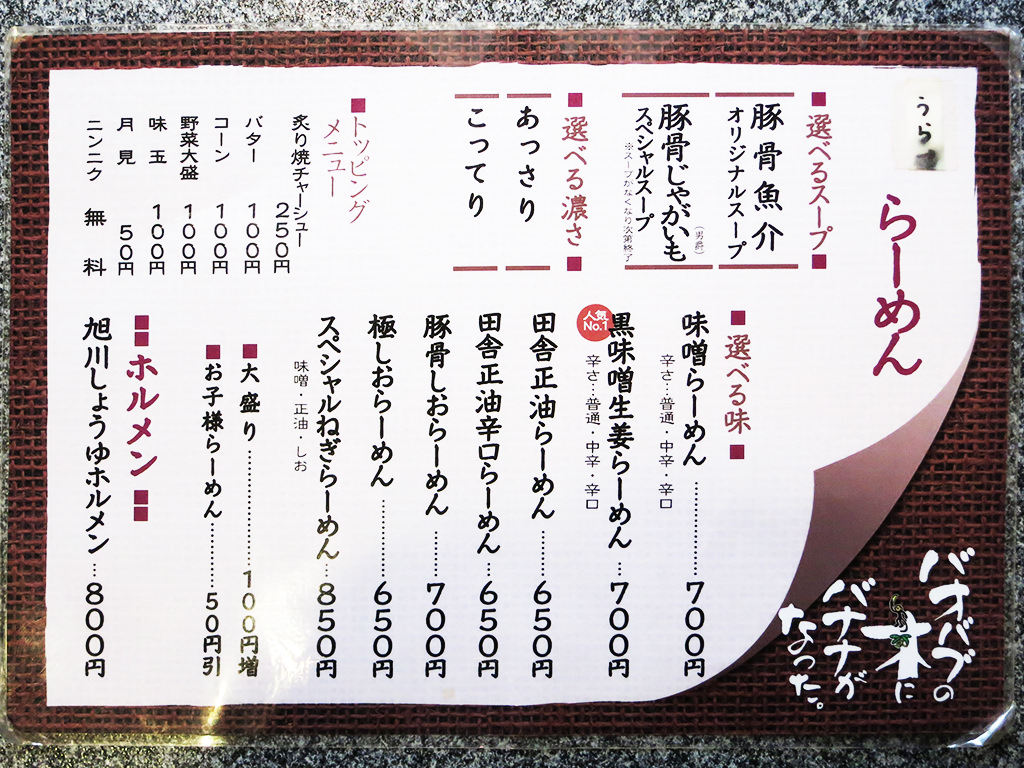 うら
らーめん
■選べるスープ■
豚骨魚介
オリジナルスープ
豚骨じゃがいも
(男爵)
スペシャルスープ
※スープがなくなり次第終了
■選べる濃さ■
あっさり
こってり
■トッピング
メニュー
炙り焼チャーシュー 250円
バター 100円
コーン 100円
野菜大盛 100円
味玉 100円
月見 50円
ニンニク 無料
■選べる味■
味噌らーめん…………700円
辛さ…普通・中辛・辛口
人気
No.1
黒味噌生姜らーめん…700円
辛さ…普通・中辛・辛口
田舎正油らーめん……650円
田舎正油辛口らーめん…650円
豚骨しおらーめん……700円
極しおらーめん…………650円
スペシャルねぎらーめん…850円
味噌・正油・しお
■大盛り……………100円増
■お子様らーめん………50円引
■■ホルメン■■
旭川しょうゆホルメン…800円
バオバブの
木に
バナナが
なった。